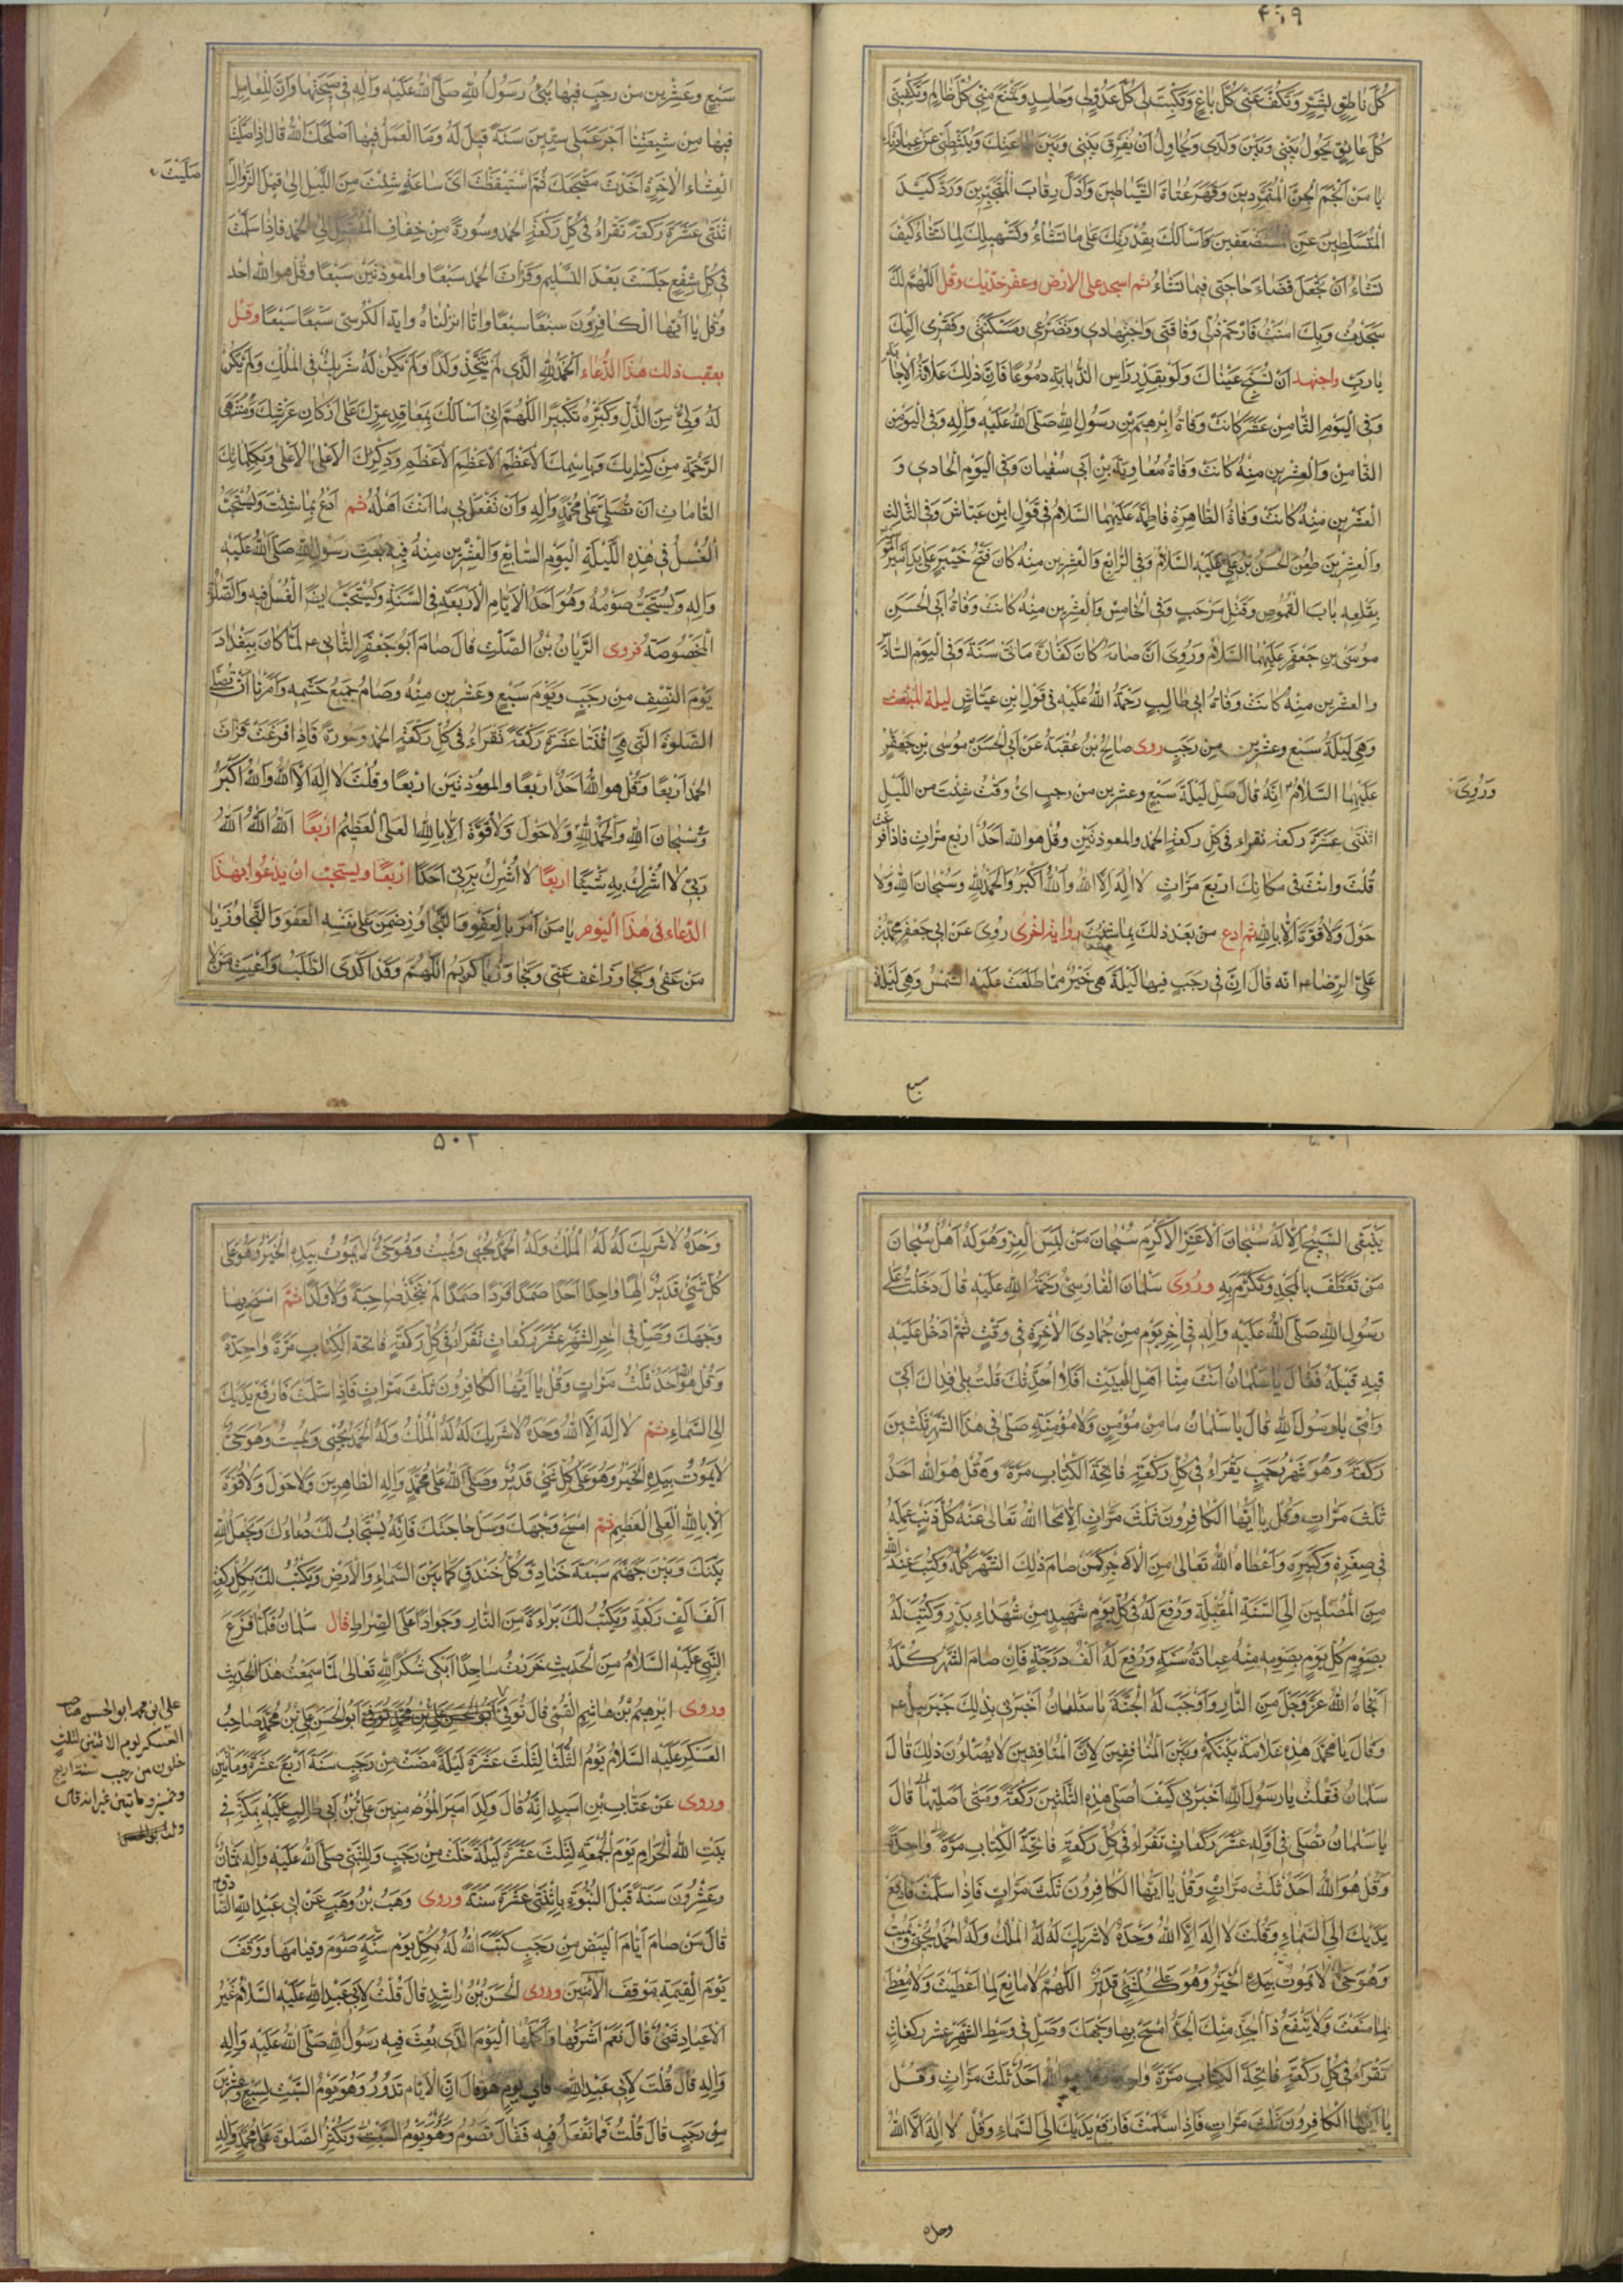 ٤٩٩
كُلَّ نَاطِقٍ بِشَرٍّ وَتَكُفَّ عَنّي كُلَّ بَاغٍ وَتَكْبِتَ لي كُلَّ عَدُوٍّ لي وَحَاسِدٍ وَتَمْنَعَ مِنّي كُلَّ ظَالِمٍ وَتَكْفِيَني
كُلَّ عَائِقٍ يَحُولُ بَيْني وَبَيْنَ وَلَدي وَيُحَاوِلُ أَنْ يُفَرِّقَ بَيْني وَبَيْنَ طاعَتِكَ وَيُثَبِّطَني عَنْ عِبَادَتِكَ
يَا مَنْ أَلْجَمَ الْجِنَّ الْمُتَمَرِّدينَ وَقَهَرَ عُتَاةَ الشَّيَاطينَ وَأَذَلَّ رِقَابَ الْمُتَجَبِّرينَ وَرَدَّ كَيْدَ
الْمُتَسَلِّطينَ عَنِ الْمُسْتَضْعَفينَ وَأَسْأَلُكَ بِقُدْرَتِكَ عَلى مَا تَشَاءُ وَتَسْهيلِكَ لِمَا تَشَاءُ كَيْفَ
تَشَاءُ أَنْ تَجْعَلَ قَضَاءَ حَاجَتي فيمَا تَشَاءُ ثم اسجد على الارض وعفر خدّيك وقل اَللّهُمَّ لَكَ
سَجَدْتُ وَبِكَ امَنْتُ فَارْحَمْ ذُلّي وَفَاقَتي وَاجْتِهَادي وَتَضَرُّعي وَمَسْكَنَتي وَفَقْري اِلَيْكَ
يَا رَبِّ واجتهد اَنْ تَسُحَّ عَيْنَاكَ وَلَوْ بِقَدْرِ رَأسِ الذُّبَابَةِ دُمُوعًا فَاِنَّ ذلِكَ عَلَامَةُ الْاِجَابَة
وَفي الْيَوْمِ الثَّامِنَ عَشَرَ كَانَتْ وَفَاةُ اِبْرهيمَ بْنِ رَسُولِ اللهِ صَلَّى اللهُ عَلَيْهِ وَالِهِ وَفي الْيَوْمِ
الثَّامِنِ وَالْعِشْرينَ مِنْهُ كَانَتْ وَفَاةُ مُعَاوِيَةَ بْنِ اَبي سُفْيَانَ وَفي الْيَوْمِ الْحَادي وَ
الْعِشْرينَ مِنْهُ كَانَتْ وَفَاةُ الطَّاهِرَةِ فَاطِمَةَ عَلَيْهَا السَّلَامُ في قَوْلِ ابْنِ عَيَّاشٍ وَفي الثَّالِثِ
وَالْعِشْرينَ طُعِنَ الْحَسَنُ بْنُ عَلِيٍّ عَلَيْهِ السَّلَامُ وَفي الرَّابِعِ وَالْعِشْرينَ مِنْهُ كَانَ فَتْحُ خَيْبَرَ عَلى يَدِ اَميرِ الْمُؤْمِنينَ
بِقَلْعِهِ بَابَ الْقَمُوصِ وَقَتْلِ مَرْحَبٍ وَفي الْخَامِسِ وَالْعِشْرينَ مِنْهُ كَانَتْ وَفَاةُ اَبي الْحَسَنِ
مُوسَى بْنِ جَعْفَرٍ عَلَيْهِمَا السَّلَامُ وَرُوِيَ اَنَّ صِيَامَهُ كَانَ كَفَّارَةَ مَائَتي سَنَةٍ وَفي الْيَوْمِ السَّادِسِ
والعشرين مِنْهُ كَانَتْ وَفَاةُ ابي طَالِبٍ رَحْمَةُ اللهُ عَلَيْهِ في قَوْلِ ابْنِ عَيَّاشٍ ليلة المبعث
وَهِيَ لَيْلَةُ سَبْعٍ وعشرين مِن رَجَبٍ روى صَالِحُ بْنُ عُقْبَةَ عَنْ اَبي الْحَسَنِ مُوسَى بْنِ جَعْفَرٍ
عَلَيْهِمَا السَّلَامُ اَنَّهُ قَالَ صَلِّ لَيْلَةَ سَبْعٍ وعشرين مِنْ رجبٍ اَيَّ وَقْتٍ شِئْتَ من اللَّيْلِ
وَرُوِيَ
اثْنَتَيْ عَشَرَةَ ركعة تقراء في كلّ ركعةٍ الحمد والمعوذتَيْنِ وقُلْ هو الله اَحَدٌ اربع مرّاتٍ فاذا فرغت
قُلْتَ وانْتَ في مكانِكَ اربَعَ مَرَّاتٍ لَا اِلهَ اِلَّا اللهُ وَاللهُ اَكْبَرُ وَالْحَمْدُ لِلهِ وَسُبْحَانَ اللهِ وَلَا
حَوْلَ وَلَا قُوَّةَ اِلَّا بِاللهِ ثم ادع مِنْ بَعْدِ ذلكَ بِمَا شِئْتَ رواية اخرى رُوِيَ عَنْ ابي جَعْفَرٍ مُحَمَّدِ بْنِ
عَلِيِّ الرِّضَا ع اَنّه قالَ اِنَّ في رَجَبٍ فيها لَيْلَةً هِيَ خَيْرٌ مِمَّا طَلَعَتْ عَلَيْهِ الشَّمْسُ وَهِيَ لَيْلَةُ
سبع
سَبْعٍ وَعِشْرينَ مِنْ رجَبٍ فيها نُبِّئَ رَسُولُ اللهِ صَلَّى اللهُ عَلَيْهِ وَالِهِ في صَبيحَتِهَا وَاِنَّ لِلْعَامِلِ
فيها مِنْ شيعَتِنَا اَجْرَ عَمَلِ سِتّينَ سَنَةً قيلَ لَهُ وَمَا الْعَمَلُ فيها اَصْلَحَكَ اللهُ قالَ اِذَا صَلَّيْتَ
صَلَّيْتَ
الْعِشَاءَ الْاخِرَةَ اَخَذْتَ مَضْجَعَكَ ثُمَّ اسْتَيْقَظْتَ اَيَّ سَاعَةٍ شِئْتَ مِنَ اللَّيْلِ اِلى قَبْلِ الزَّوَالِ
اثْنَتَيْ عَشْرَةَ رَكْعَةً تَقْرَاءُ في كُلِّ رَكْعَةٍ الحمد وَسُورَةً مِنْ خِفَافِ الْمُفَصَّلِ اِلى الحمد فَاِذَا سَلَّمْتَ
في كُلِّ شَفْعٍ جَلَسْتَ بَعْدَ التَّسْليمِ وَقَرَأتَ الحمد سَبْعًا والمعوذتَيْنِ سَبْعًا وقُلْ هو الله احد
وقُلْ يَا اَيُّهَا الْكَافِرُونَ سَبْعًا سَبْعًا وَاِنَّا اَنْزَلْنَاهُ وايةَ الْكُرْسِيِّ سَبْعًا سَبْعًا وقل
بعقب ذلك هذا الدُّعاء اَلْحَمْدُ لِلهِ الَّذي لَمْ يَتَّخِذْ وَلَدًا وَلَمْ يَكُنْ لَهُ شَريكٌ في الْمُلْكِ وَلَمْ يَكُنْ
لَهُ وَلِيٌّ مِنَ الذُّلِّ وَكَبِّرْهُ تَكْبيرًا اَللّهُمَّ اِنّي اَسْأَلُكَ بِمَعَاقِدِ عِزِّكَ عَلى اَرْكَانِ عَرْشِكَ وَمُنْتَهَى
الرَّحْمَةِ مِنْ كِتَابِكَ وَبِاسْمِكَ الْاَعْظَمِ الْاَعْظَمِ الْاَعْظَمِ وَذِكْرِكَ الْاَعْلَى الْاَعْلَى وَبِكَلِمَاتِكَ
التَّامَّاتِ اَنْ تُصَلِّيَ عَلى مُحَمَّدٍ وَالِهِ وَاَنْ تَفْعَلَ بي مَا اَنْتَ اَهْلُهُ ثم ادْعُ بِمَا شِئْتَ وَيُسْتَحَبُّ
الْغُسْلُ في هذِهِ اللَّيْلَةِ الْيَوْمُ السَّابِعُ وَالْعِشْرينَ مِنْهُ فيهِ بُعِثَ رَسُولُ اللهِ صَلَّى اللهُ عَلَيْهِ
وَالِهِ وَيُسْتَحَبُّ صَوْمُهُ وَهُوَ اَحَدُ الْاَيَّامِ الْاَرْبَعَةِ في السَّنَةِ وَيُسْتَحَبُّ ايضًا الْغُسْلُ فيهِ وَالصَّلوةُ
الْمَخْصُوصَةُ فروى الرَّيَّانُ بْنُ الصَّلْتِ قَالَ صَامَ اَبُو جَعْفَرٍ الثَّاني ع لَمَّا كَانَ بِبَغْدَادَ
يَوْمَ النِّصْفِ مِنْ رَجَبٍ وَيَوْمَ سَبْعٍ وَعِشْرينَ مِنْهُ وَصَامَ جَميعُ حَشَمِهِ وَاَمَرَنَا اَنْ نُصَلِّيَ
الصَّلوةَ الَّتي هِيَ اثْنَتَا عَشَرَةَ رَكْعَةً تَقْرَاءُ في كُلِّ رَكْعَةٍ الحمد وَسُورَةً فَاِذَا فَرَغْتَ قَرَأتَ
الحمد اَرْبَعًا وَقُلْ هو اللهُ اَحَدٌ اَرْبَعًا والمعوّذتَيْنِ اَرْبَعًا وقُلْتَ لَا اِلهَ اِلَّا اللهُ وَاللهُ اَكْبَرُ
وَسُبْحَانَ اللهِ وَالْحَمْدُ لِلهِ وَلَا حَوْلَ وَلَا قُوَّةَ اِلَّا بِاللهِ الْعَلِيِّ الْعَظيمِ اربعًا اَللهُ اَللهُ اللهُ
رَبّي لَا اُشْرِكُ بِهِ شَيْئًا اربعًا لَا اُشْرِكُ بِرَبّي اَحَدًا اربعًا ويستحبّ ان يدعوا بهذا
الدّعاء في هذا اليوم يَا مَنْ اَمَرَ بِالْعَفْوِ وَالتَّجَاوُزِ وَضَمِنَ عَلى نَفْسِهِ الْعَفْوَ وَالتَّجَاوُزَ يَا
مَنْ عَفى وَتَجَاوَزَ اعْفُ عَنّي وَتَجَاوَزْ يَا كَريمُ اَللّهُمَّ وَقَدْ اَكْدَى الطَّلَبُ وَاَعْيَتِ
٥٠١
يَنْبَغي التَّسْبيحُ اِلَّا لَهُ سُبْحَانَ الْاَعَزِّ الْاَكْرَمِ سُبْحَانَ مَنْ لَبِسَ الْعِزَّ وَهُوَ لَهُ اَهْلٌ سُبْحَانَ
مَنْ تَعَطَّفَ بِالْمَجْدِ وَتَكَرَّمَ بِهِ وروى سَلْمَانُ الْفَارِسِيُّ رَحْمَةُ اللهِ عَلَيْهِ قَالَ دَخَلْتُ عَلى
رَسُولِ اللهِ صَلَّى اللهُ عَلَيْهِ وَالِهِ في اخِرِ يَوْمٍ مِنْ جُمَادِى الْاخِرَةِ في وَقْتٍ لَمْ اَدْخُلْ عَلَيْهِ
فيهِ قَبْلَهُ فَقَالَ يَا سَلْمَانُ اَنْتَ مِنَّا اَهْلَ الْبَيْتِ اَفَلَا اُحَدِّثُكَ قُلْتُ بَلى فِدَاكَ اَبي
وَاُمّي يَا رَسُولَ اللهِ قَالَ يَا سَلْمَانُ مَا مِنْ مُؤْمِنٍ وَلَا مُؤْمِنَةٍ صَلّى في هذَا الشَّهْرِ ثَلثينَ
رَكْعَةً وَهُوَ شَهْرُ رَجَبٍ يَقْرَاءُ في كُلِّ رَكْعَةٍ فَاتِحَةَ الْكِتَابِ مَرَّةً وَقُلْ هُوَ اللهُ اَحَدٌ
ثَلثَ مَرَّاتٍ وَقُلْ يَا اَيُّهَا الْكَافِرُونَ ثَلثَ مَرَّاتٍ اِلَّا مَحَا اللهُ تَعَالى عَنْهُ كُلَّ ذَنْبٍ عَمِلَهُ
في صِغَرِهِ وَكِبَرِهِ وَاَعْطَاهُ اللهُ تَعَالى مِنَ الْاَجْرِ كَمَنْ صَامَ ذلِكَ الشَّهْرَ كُلَّهُ وَكُتِبَ عِنْدَ اللهِ
مِنَ الْمُصَلّينَ اِلَى السَّنَةِ الْمُقْبِلَةِ وَرُفِعَ لَهُ في كُلِّ يَوْمٍ شَهيدٍ مِنْ شُهَدَاءِ بَدْرٍ وَكُتِبَ لَهُ
بِصَوْمِ كُلِّ يَوْمٍ يَصُومُهُ مِنْهُ عِبَادَةُ سَنَةٍ وَرُفِعَ لَهُ اَلْفُ دَرَجَةٍ فَاِنْ صَامَ الشَّهْرَ كُلَّهُ
اَنْجَاهُ اللهُ عَزَّ وَجَلَّ مِنَ النَّارِ وَاَوْجَبَ لَهُ الْجَنَّةَ يَا سَلْمَانُ اَخْبَرَني بِذلِكَ جَبْرَئيلُ ع
وَقَالَ يَا مُحَمَّدُ هذِهِ عَلَامَةٌ بَيْنَكُمْ وَبَيْنَ الْمُنَافِقينَ لِاَنَّ الْمُنَافِقينَ لَا يُصَلُّونَ ذلِكَ قَالَ
سَلْمَانُ فَقُلْتُ يَا رَسُولَ اللهِ اَخْبِرْني كَيْفَ اُصَلّي هذِهِ الثَّلثينَ رَكْعَةً وَمَتى اُصَلّيهَا قَالَ
يَا سَلْمَانُ تُصَلّي في اَوَّلِهِ عَشَرَ رَكَعَاتٍ تَقْرَاءُ في كُلِّ رَكْعَةٍ فَاتِحَةَ الْكِتَابِ مَرَّةً وَاحِدَةً
وَقُلْ هُوَ اللهُ اَحَدٌ ثَلثَ مَرَّاتٍ وَقُلْ يَا اَيُّهَا الْكَافِرُونَ ثَلثَ مَرَّاتٍ فَاِذَا سَلَّمْتَ فَارْفَعْ
يَدَيْكَ اِلَى السَّمَاءِ وَقُلْتَ لَا اِلهَ اِلَّا اللهُ وَحْدَهُ لَا شَريكَ لَهُ لَهُ الْمُلْكُ وَلَهُ الْحَمْدُ يُحْيي وَيُميتُ
وَهُوَ حَيٌّ لَا يَمُوتُ بِيَدِهِ الْخَيْرُ وَهُوَ عَلى كُلِّ شَيْءٍ قَديرٌ اَللّهُمَّ لَا مَانِعَ لِمَا اَعْطَيْتَ وَلَا مُعْطِيَ
لِمَا مَنَعْتَ وَلَا يَنْفَعُ ذَا الْجَدِّ مِنْكَ الْجَدُّ امْسَحْ بِهَا وَجْهَكَ وَصَلِّ في وَسَطِ الشَّهْرِ عَشَرَ رَكَعَاتٍ
تَقْرَاءُ في كُلِّ رَكْعَةٍ فَاتِحَةَ الْكِتَابِ مَرَّةً وَاحِدَةً وَقُلْ هُوَ اللهُ اَحَدٌ ثَلثَ مَرَّاتٍ وَقُلْ
يَا اَيُّهَا الْكَافِرُونَ ثَلثَ مَرَّاتٍ فَاِذَا سَلَّمْتَ فَارْفَعْ يَدَيْكَ اِلَى السَّمَاءِ وَقُلْ لَا اِلهَ اِلَّا اللهُ
وحده
٥٠٢
وَحْدَهُ لَا شَريكَ لَهُ لَهُ الْمُلْكُ وَلَهُ الْحَمْدُ يُحْيي وَيُميتُ وَهُوَ حَيٌّ لَا يَمُوتُ بِيَدِهِ الْخَيْرُ وَهُوَ عَلى
كُلِّ شَيْءٍ قَديرٌ اِلهًا وَاحِدًا اَحَدًا صَمَدًا فَرْدًا صَمَدًا لَمْ يَتَّخِذْ صَاحِبَةً وَلَا وَلَدًا ثم امْسَحْ بِهَا
وَجْهَكَ وَصَلِّ في اخِرِ الشَّهْرِ عَشَرَ رَكَعَاتٍ تَقْرَاءُ في كُلِّ رَكْعَةٍ فَاتِحَةَ الْكِتَابِ مَرَّةً وَاحِدَةً
وَقُلْ هُوَ اللهُ اَحَدٌ ثَلثَ مَرَّاتٍ وَقُلْ يَا اَيُّهَا الْكَافِرُونَ ثَلثَ مَرَّاتٍ فَاِذَا سَلَّمْتَ فَارْفَعْ يَدَيْكَ
اِلَى السَّمَاءِ ثم لَا اِلهَ اِلَّا اللهُ وَحْدَهُ لَا شَريكَ لَهُ لَهُ الْمُلْكُ وَلَهُ الْحَمْدُ يُحْيي وَيُميتُ وَهُوَ حَيٌّ
لَا يَمُوتُ بِيَدِهِ الْخَيْرُ وَهُوَ عَلى كُلِّ شَيْءٍ قَديرٌ وَصَلَّى اللهُ عَلى مُحَمَّدٍ وَالِهِ الطَّاهِرينَ وَلَا حَوْلَ وَلَا قُوَّةَ
اِلَّا بِاللهِ الْعَلِيِّ الْعَظيمِ ثم امْسَحْ وَجْهَكَ وَسَلْ حَاجَتَكَ فَاِنَّهُ يُسْتَجَابُ لَكَ دُعَاءُكَ وَيَجْعَلُ اللهُ
بَيْنَكَ وَبَيْنَ جَهَنَّمَ سَبْعَةَ خَنَادِقَ كُلُّ خَنْدَقٍ كَمَا بَيْنَ السَّمَاءِ وَالْاَرْضِ وَيَكْتُبُ لَكَ بِكُلِّ رَكْعَةٍ
اَلْفَ اَلْفِ رَكْعَةٍ وَيَكْتُبُ لَكَ بَرَاءَةً مِنَ النَّارِ وَجَوَازًا عَلَى الصِّرَاطِ قال سَلْمَانُ فَلَمَّا فَرَغَ
النَّبِيُّ عَلَيْهِ السَّلَامُ مِنَ الْحَديثِ خَرَرْتُ سَاجِدًا اَبْكي شُكْرًا لِلهِ تَعَالى لَمَّا سَمِعْتُ هذَا الْحَديثَ
وروى اِبْرهيمُ بْنُ هَاشِمٍ الْقُمّيُّ قَالَ تُوُفِّيَ اَبُو الْحَسَنِ عَلِيُّ بْنُ مُحَمَّدٍ صَاحِبُ
الْعَسْكَرِ عَلَيْهِ السَّلَامُ يَوْمَ الثُّلَثَاءِ لِثَلثَ عَشَرَةَ لَيْلَةً مَضَتْ مِنْ رَجَبٍ سَنَةَ اَرْبَعَ عَشَرَةَ وَمَائَتَيْنِ
علي ابن محمد ابو الحسن صاحب
العسكر ليوم الاثنين لثلث
خلون من رجب سنة اربع
وخمسين ومائتين غير انه قال
وروى عَنْ عَتَّابِ بْنِ اُسَيْدٍ اِنَّهُ قَالَ وُلِدَ اَميرُ الْمُؤْمِنينَ عَلِيُّ بْنُ اَبي طَالِبٍ عَلَيْهِ بِمَكَّةَ في
بَيْتِ اللهِ الْحَرَامِ يَوْمَ الْجُمْعَةِ لِثَلثَ عَشَرَةَ لَيْلَةً خَلَتْ مِنْ رَجَبٍ وَلِلنَّبِيِّ صَلَّى اللهُ عَلَيْهِ وَالِهِ ثَمَانٌ
وَعِشْرُونَ سَنَةً قَبْلَ النُّبُوَّةِ بِاثْنَتَيْ عَشَرَةَ سَنَةً وروى وَهَبُ بْنُ وَهَبٍ عَنْ اَبي عَبْدِ اللهِ الصَّادِقِ
قَالَ مَنْ صَامَ اَيَّامَ الْبيضِ مِنْ رَجَبٍ كَتَبَ اللهُ لَهُ بِكُلِّ يَوْمٍ سَنَةٍ صَوْمَ وَقِيَامَهَا وَوَقَفَ
يَوْمَ الْقِيمَةِ مَوْقِفَ الْامِنينَ وروى الْحَسَنُ بْنُ رَاشِدٍ قَالَ قُلْتُ لِاَبي عَبْدِ اللهِ عَلَيْهِ السَّلَامُ غَيْرَ
الْاَعْيَادِ شَيْءٌ قَالَ نَعَمْ اَشْرَفُهَا وَاَكْمَلُهَا الْيَوْمُ الَّذي بُعِثَ فيهِ رَسُولُ اللهِ صَلَّى اللهُ عَلَيْهِ وَالِهِ
وَالِهِ قَالَ قُلْتُ لِاَبي عَبْدِ اللهِ فَاَيُّ يَوْمٍ هُوَ قَالَ اِنَّ الْاَيَّامَ تَدُورُ وَهُوَ يَوْمُ السَّبْتِ لِسَبْعٍ وَعِشْرينَ
مِنْ رَجَبٍ قَالَ قُلْتُ فَمَا نَفْعَلُ فيهِ فَقَالَ تَصُومُ وَهُوَ يَوْمُ السَّبْتِ وَتُكْثِرُ الصَّلوةَ عَلى مُحَمَّدٍ وَالِهِ